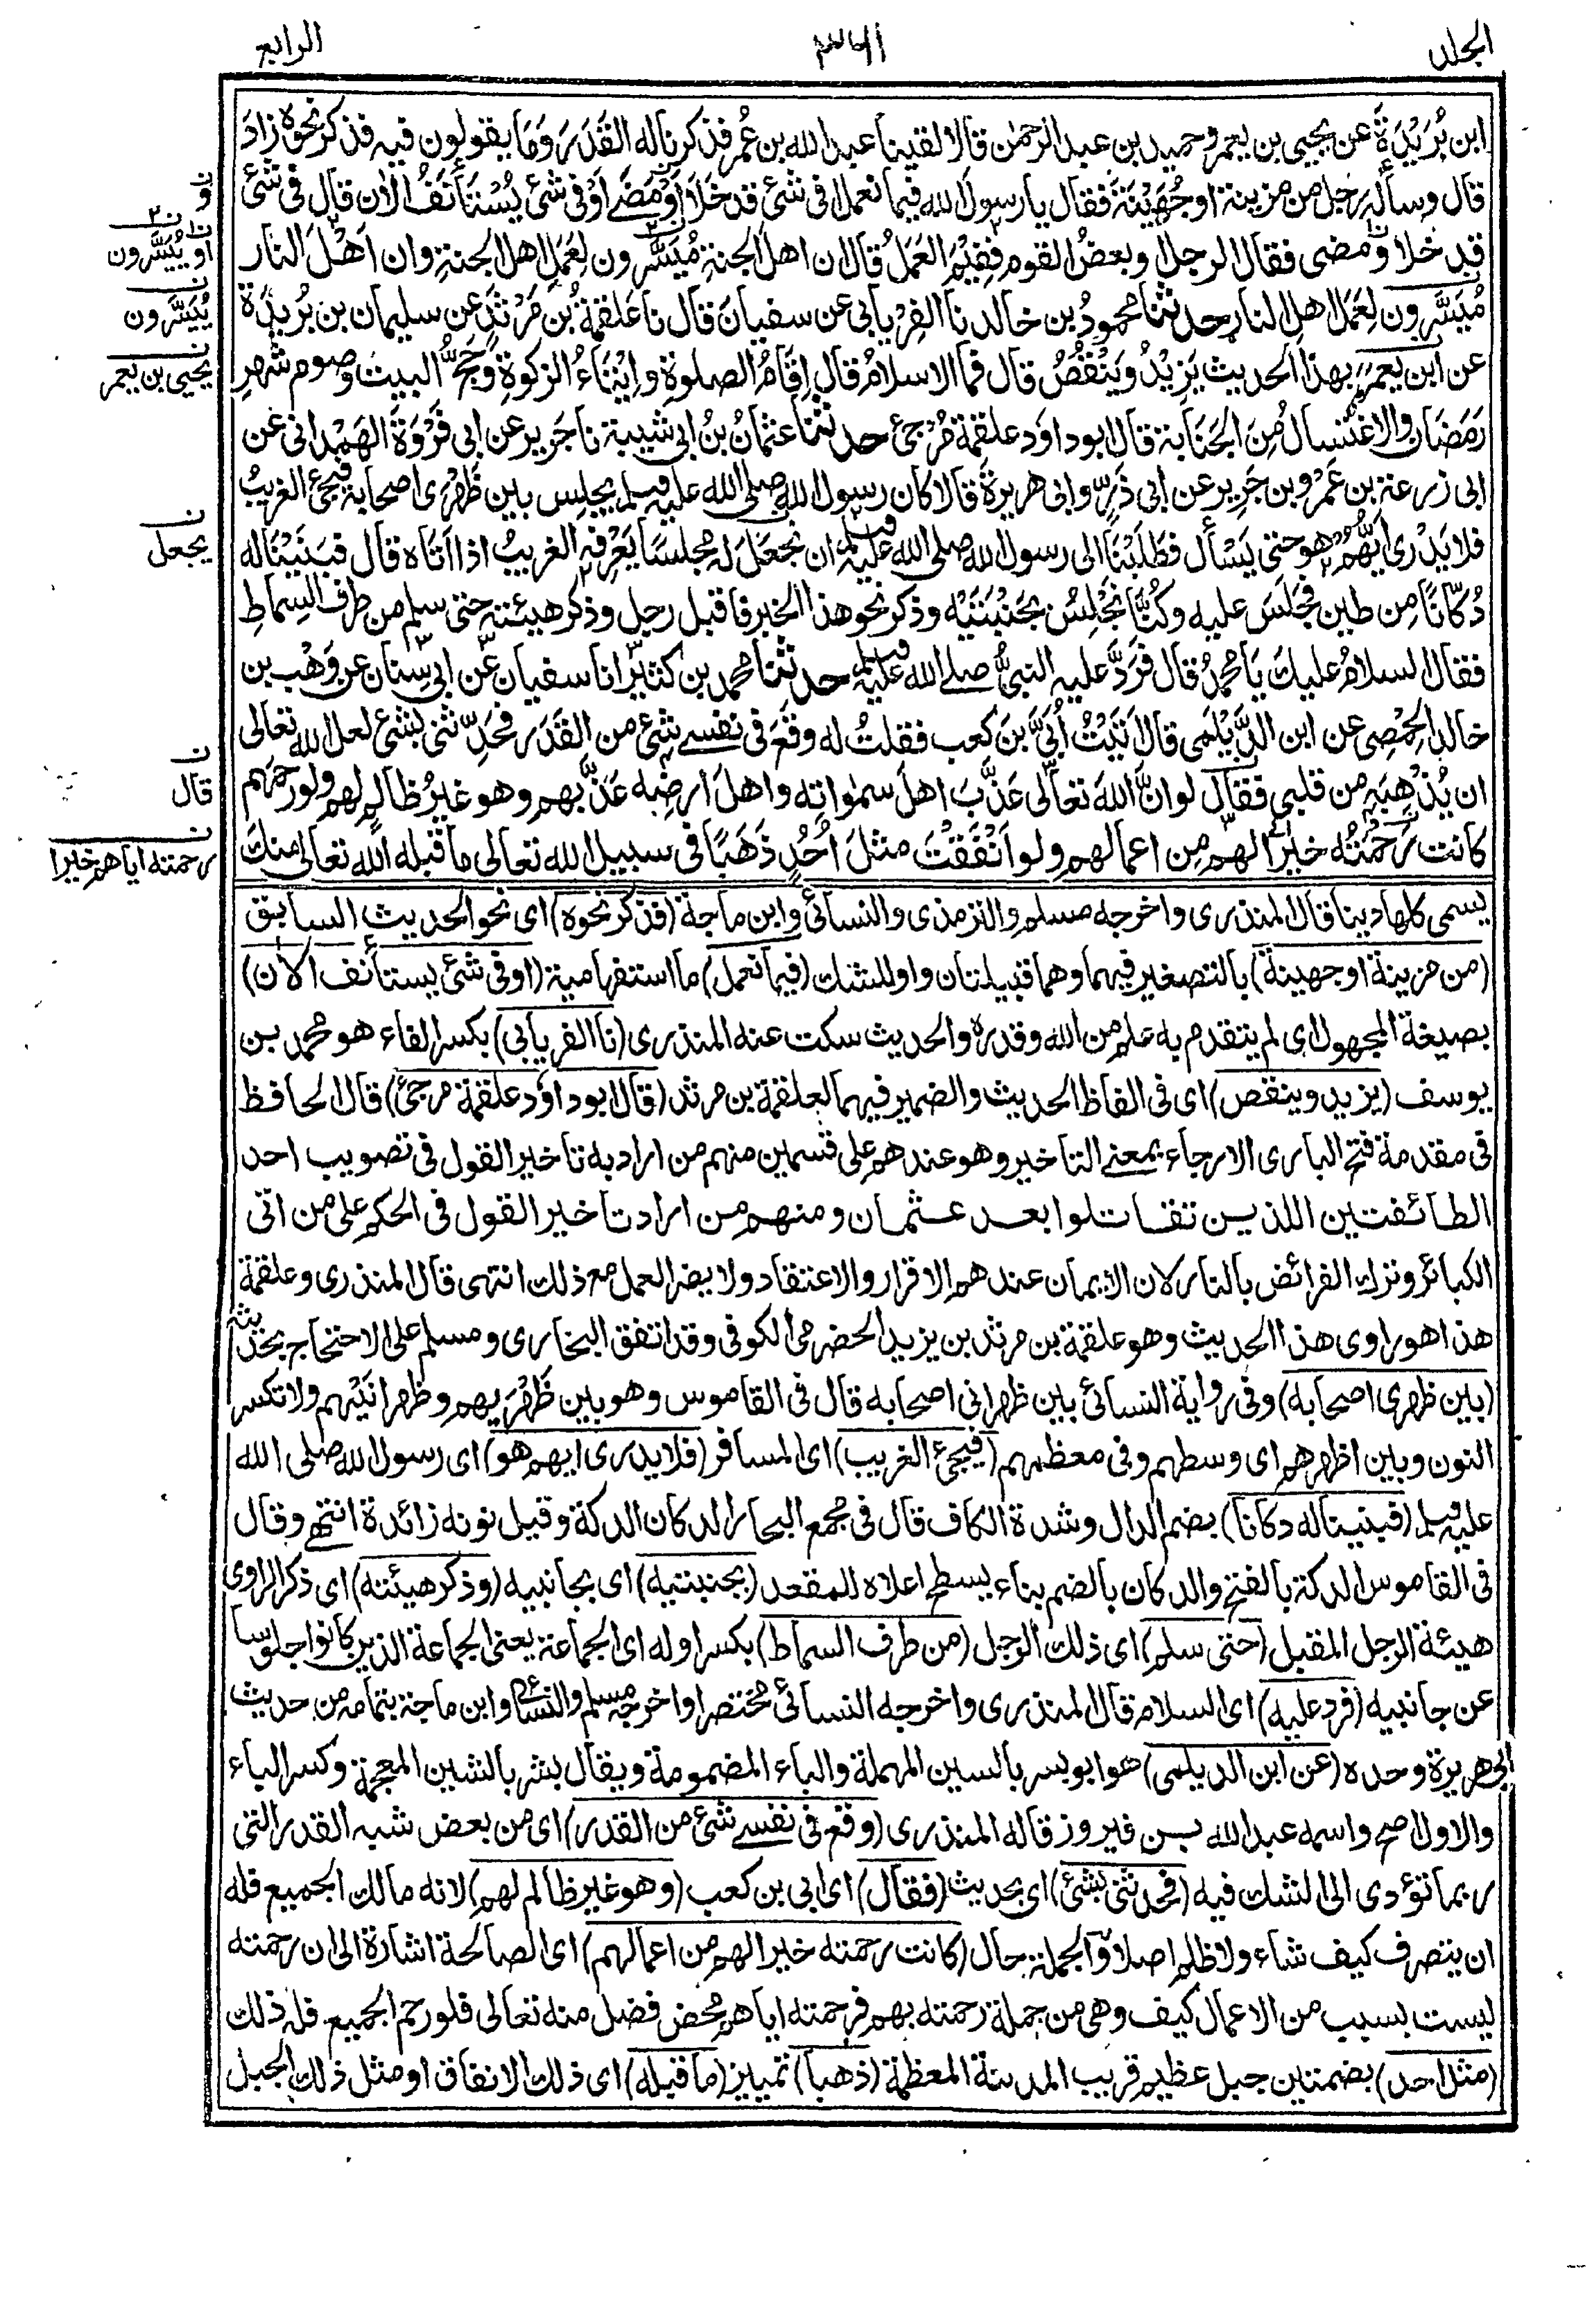 الجلد ٣٦١ الرابع
ابن بُرَيْدَةَ عن يحيى بن يعمر وحميد بن عبد الرحمٰن قالا لقينا عبد الله بن عُمر فذكرنا له القَدَرَ وَمَا يقولون فيه فذكر نحوه زادَ
قال وسأله رجل من مزينة او جُهَيْنَةَ فقال يا رسول الله فيما نعمل افى شئى قد خَلَا اَوْ مَضَے اَوْ فى شئى يُسْتَأنَفُ الاٰن قال فى شئى
قد خلا و مضى فقال الرجل او بعضُ القوم ففِيْمَ العَمَلُ قال ان اهلَ الجنةِ مُيَسَّرون لِعَمَلِ اهل الجنةِ وان اَهْلَ النار
مُيَسَّرون لِعَمَلِ اهل النار حدثنا محمودُ بن خالد نا الفِرْيابى عن سفيانَ قال نا علقمةُ بن مَرْثَدٍ عن سليمان بن بُرَيدَةَ
عن ابن يعمر بهذا الحديث يَزِيْدُ ويَنْقُصُ قال فما الاسلامُ قال اِقَامُ الصلوةِ واِيْتَاءُ الزكوةِ وَحَجُّ البيتِ وصوم شهرِ
رَمَضَانَ والاغتسالُ مِنَ الجَنَابة قال ابو داود علقمة مُرْجِئ حدثنا عثمانُ بنُ ابى شيبة نا جَرير عن ابى فَرْوَةَ الهَمْدانى عن
ابى زرعة بن عَمْرو بن جَرِير عن ابى ذَرّ وابى هريرةَ قالا كان رسول الله صلى الله عليه وسلم يجلِس بين ظَهْرَى اصحابه فيجئ الغريبُ
فلا يَدْرى اَيُّهُمْ هو حتى يَسْأَل فطَلَبْنَا الى رسول الله صلى الله عليه وسلم ان نجْعَلَ له مجلسًا يَعْرِفه الغريبُ اذا اَتَاه قال فبَنَيْنَا له
دُكّانًا مِن طين فجَلَسَ عليه وكُنَّا نَجْلِسُ بجَنْبَتَيْه وذكر نحو هذا الخبر فاقبل رجل وذكر هيئته حتى سلم من طرف السِماطِ
فقال السلامُ عليك يا محمدُ قال فَرَدَّ عليه النبىُّ صلے الله عليه وسلم حدثنا محمد بن كَثير انا سفيان عن ابى سِنان عن وَهْب بن
خالد الحِمْصِى عن ابن الدَّيْلَمى قال اَتَيْتُ اُبَىَّ بنَ كعب فقلتُ له وقَعَ فى نفسے شئ من القَدَر فحَدِّثنى بشئ لعل الله تعالى
ان يُذْهِبَه من قلبى فقال لو انَّ اللهَ تعالى عَذَّبَ اهل سمواته واهلَ ارضِه عَذَّبهم وهو غيرُ ظالمٍ لهم ولو رحمهم
كانت رَحْمَتُه خيرًا لهم مِن اعمالهم ولو اَنْفَقْتَ مثلَ اُحُدٍ ذَهَبًا فى سبيل الله تعالى ما قبله الله تعالى منك
و
او ييسّرون
يُيَسَّرون
يحيى بن يعمر
يجعل
قال
رحمته اياهم خيرا
يسمى كلها دينا قال المنذرى واخرجه مسلم والترمذى والنسائى وابن ماجة (فذكر نحوه) اى نحو الحديث السابق
(من مزينة او جهينة) بالتصغير فيهما وهما قبيلتان واو للشك (فيما نعمل) ما استفهامية (او فى شئ يستأنف الاٰن)
بصيغة المجهول اى لم يتقدم به علم من الله وقدره والحديث سكت عنه المنذرى (نا الفريابى) بكسر الفاء هو محمد بن
يوسف (يزيد وينقص) اى فى الفاظ الحديث والضمير فيهما لعلقمة بن مرثد (قال ابو داود علقمة مرجئ) قال الحافظ
فى مقدمة فتح البارى الارجاء بمعنے التاخير وهو عندهم على قسمين منهم من اراد به تاخير القول فى تصويب احد
الطائفتين اللذين تقاتلوا بعد عثمان ومنهم من اراد تاخير القول فى الحكم على من اتى
الكبائر وترك الفرائض بالنار لان الايمان عندهم الاقرار والاعتقاد ولا يضر العمل مع ذلك انتهى قال المنذرى وعلقمة
هذا هو راوى هذا الحديث وهو علقمة بن مرثد بن يزيد الحضرمى الكوفى وقد اتفق البخارى ومسلم على الاحتجاج بحديثه
(بين ظهرى اصحابه) وفى رواية النسائى بين ظهرانى اصحابه قال فى القاموس وهو بين ظَهْرَيهم وظهرانَيْهم ولا تكسر
النون وبين اظهرهم اى وسطهم وفى معظمهم (فيجئ الغريب) اى المسافر (فلا يدرى ايهم هو) اى رسول الله صلى الله
عليه وسلم (فبنينا له دكانا) بضم الدال وشدة الكاف قال فى مجمع البحار الدكان الدكة وقيل نونه زائدة انتهے وقال
فى القاموس الدكة بالفتح والدكان بالضم بناء يسطح اعلاه للمقعد (بجنبتيه) اى بجانبيه (وذكر هيئته) اى ذكر الراوى
هيئة الرجل المقبل (حتى سلم) اى ذلك الرجل (من طرف السماط) بكسر اوله اى الجماعة يعنى الجماعة الذين كانوا جلوسا
عن جانبيه (فرد عليه) اى السلام قال المنذرى واخرجه النسائى مختصرا واخرجه مسلم والنسائى وابن ماجة بتمامه من حديث
ابى هريرة وحده (عن ابن الديلمى) هو ابو بسر بالسين المهملة والباء المضمومة ويقال بشر بالشين المعجمة وكسر الباء
والاول اصح واسمه عبد الله بن فيروز قاله المنذرى (وقع فى نفسے شئ من القدر) اى من بعض شبه القدر التى
ربما تؤدى الى الشك فيه (فحدثنى بشئ) اى بحديث (فقال) اى ابى بن كعب (وهو غير ظالم لهم) لانه مالك الجميع فله
ان يتصرف كيف شاء ولا ظلم اصلا والجملة حال (كانت رحمته خيرا لهم من اعمالهم) اى الصالحة اشارة الى ان رحمته
ليست بسبب من الاعمال كيف وهى من جملة رحمته بهم فرحمته اياهم محض فضل منه تعالى فلو رحم الجميع فله ذلك
(مثل احد) بضمتين جبل عظيم قريب المدينة المعظمة (ذهبا) تمييز (ما قبله) اى ذلك الانفاق او مثل ذلك الجبل